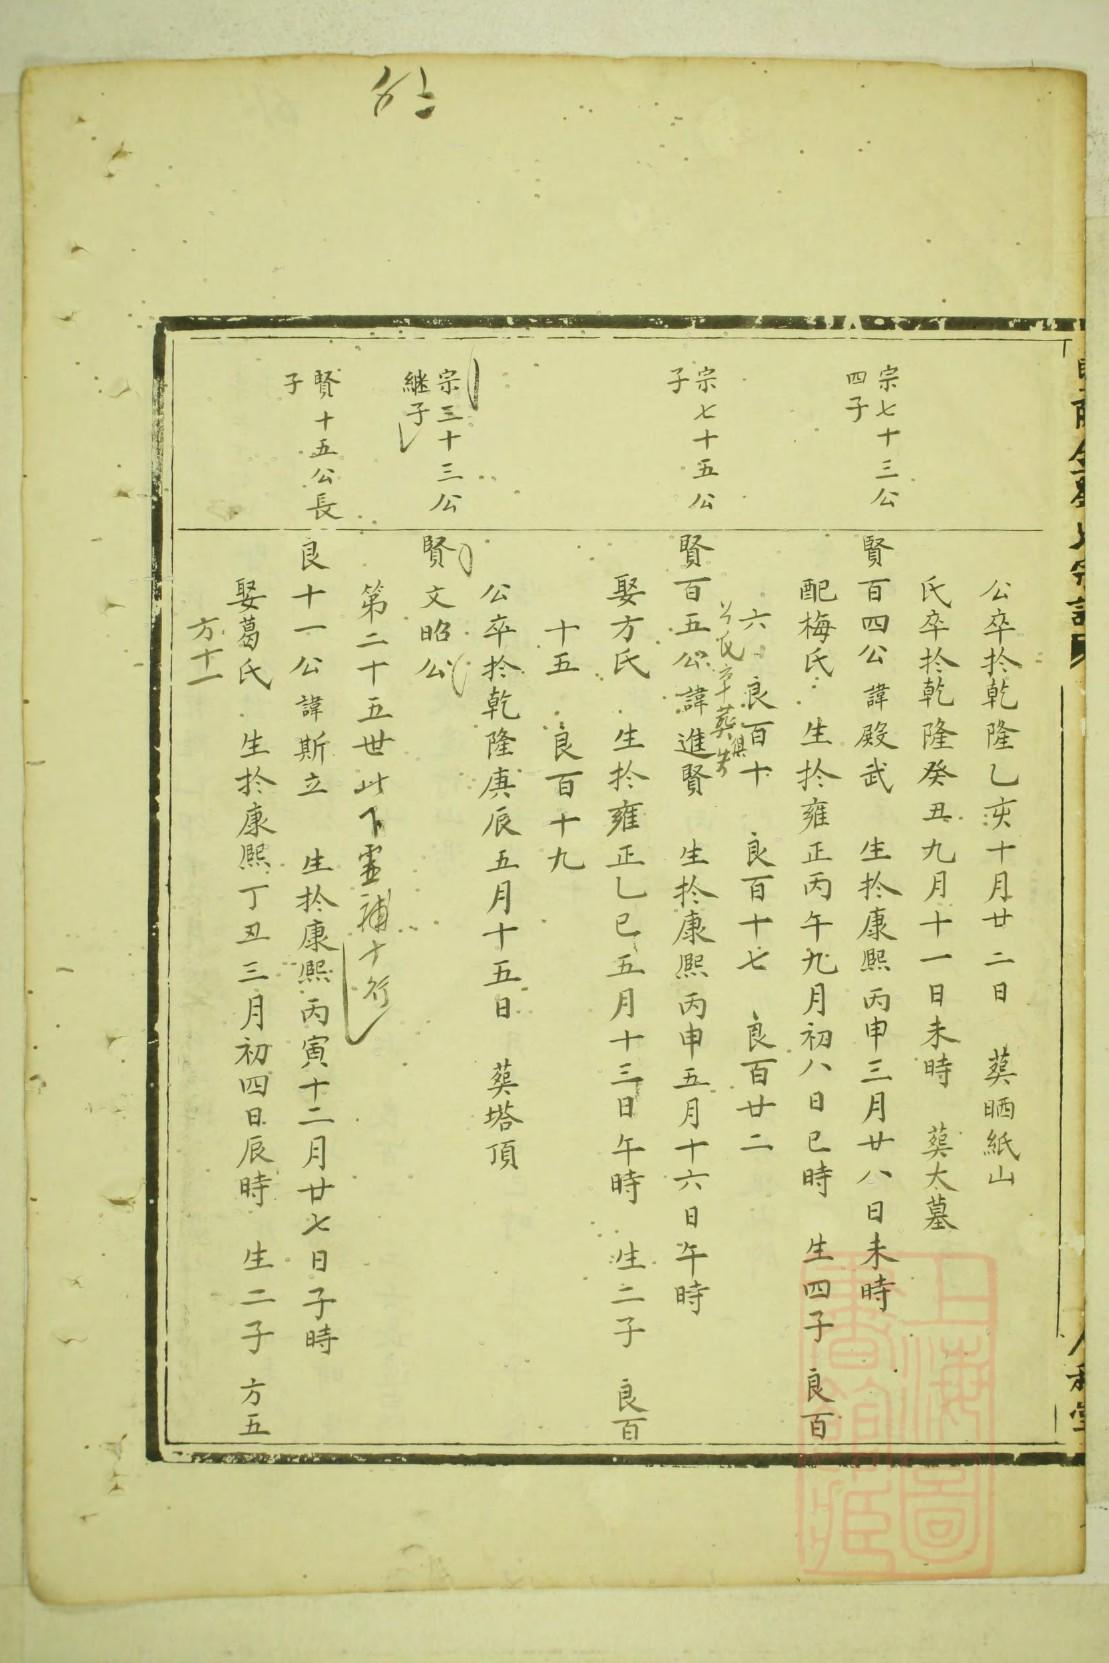 公卒於乾隆乙亥十月廿二日 葬晒紙山
氏卒於乾隆癸丑九月十一日未時 葬大墓
宗七十三公
四子
賢百四公諱殿武 生於康熙丙申三月廿八日未時
配梅氏 生於雍正丙午九月初八日巳時 生四子 良百
六 良百十 良百十七 良百廿二
公氏卒葬俱失
宗七十五公
子
賢百五公諱進賢 生於康熙丙申五月十六日午時
娶方氏 生於雍正乙巳五月十三日午時 生二子 良百
十五 良百十九
公卒於乾隆庚辰五月十五日 葬塔頂
宗三十三公
継子
賢文昭公
第二十五世此下 補十行
賢十五公長
子
良十一公諱斯立 生於康熙丙寅十二月廿七日子時
娶葛氏 生於康熙丁丑三月初四日辰時 生二子 方五
方十一
上海圖
書館藏